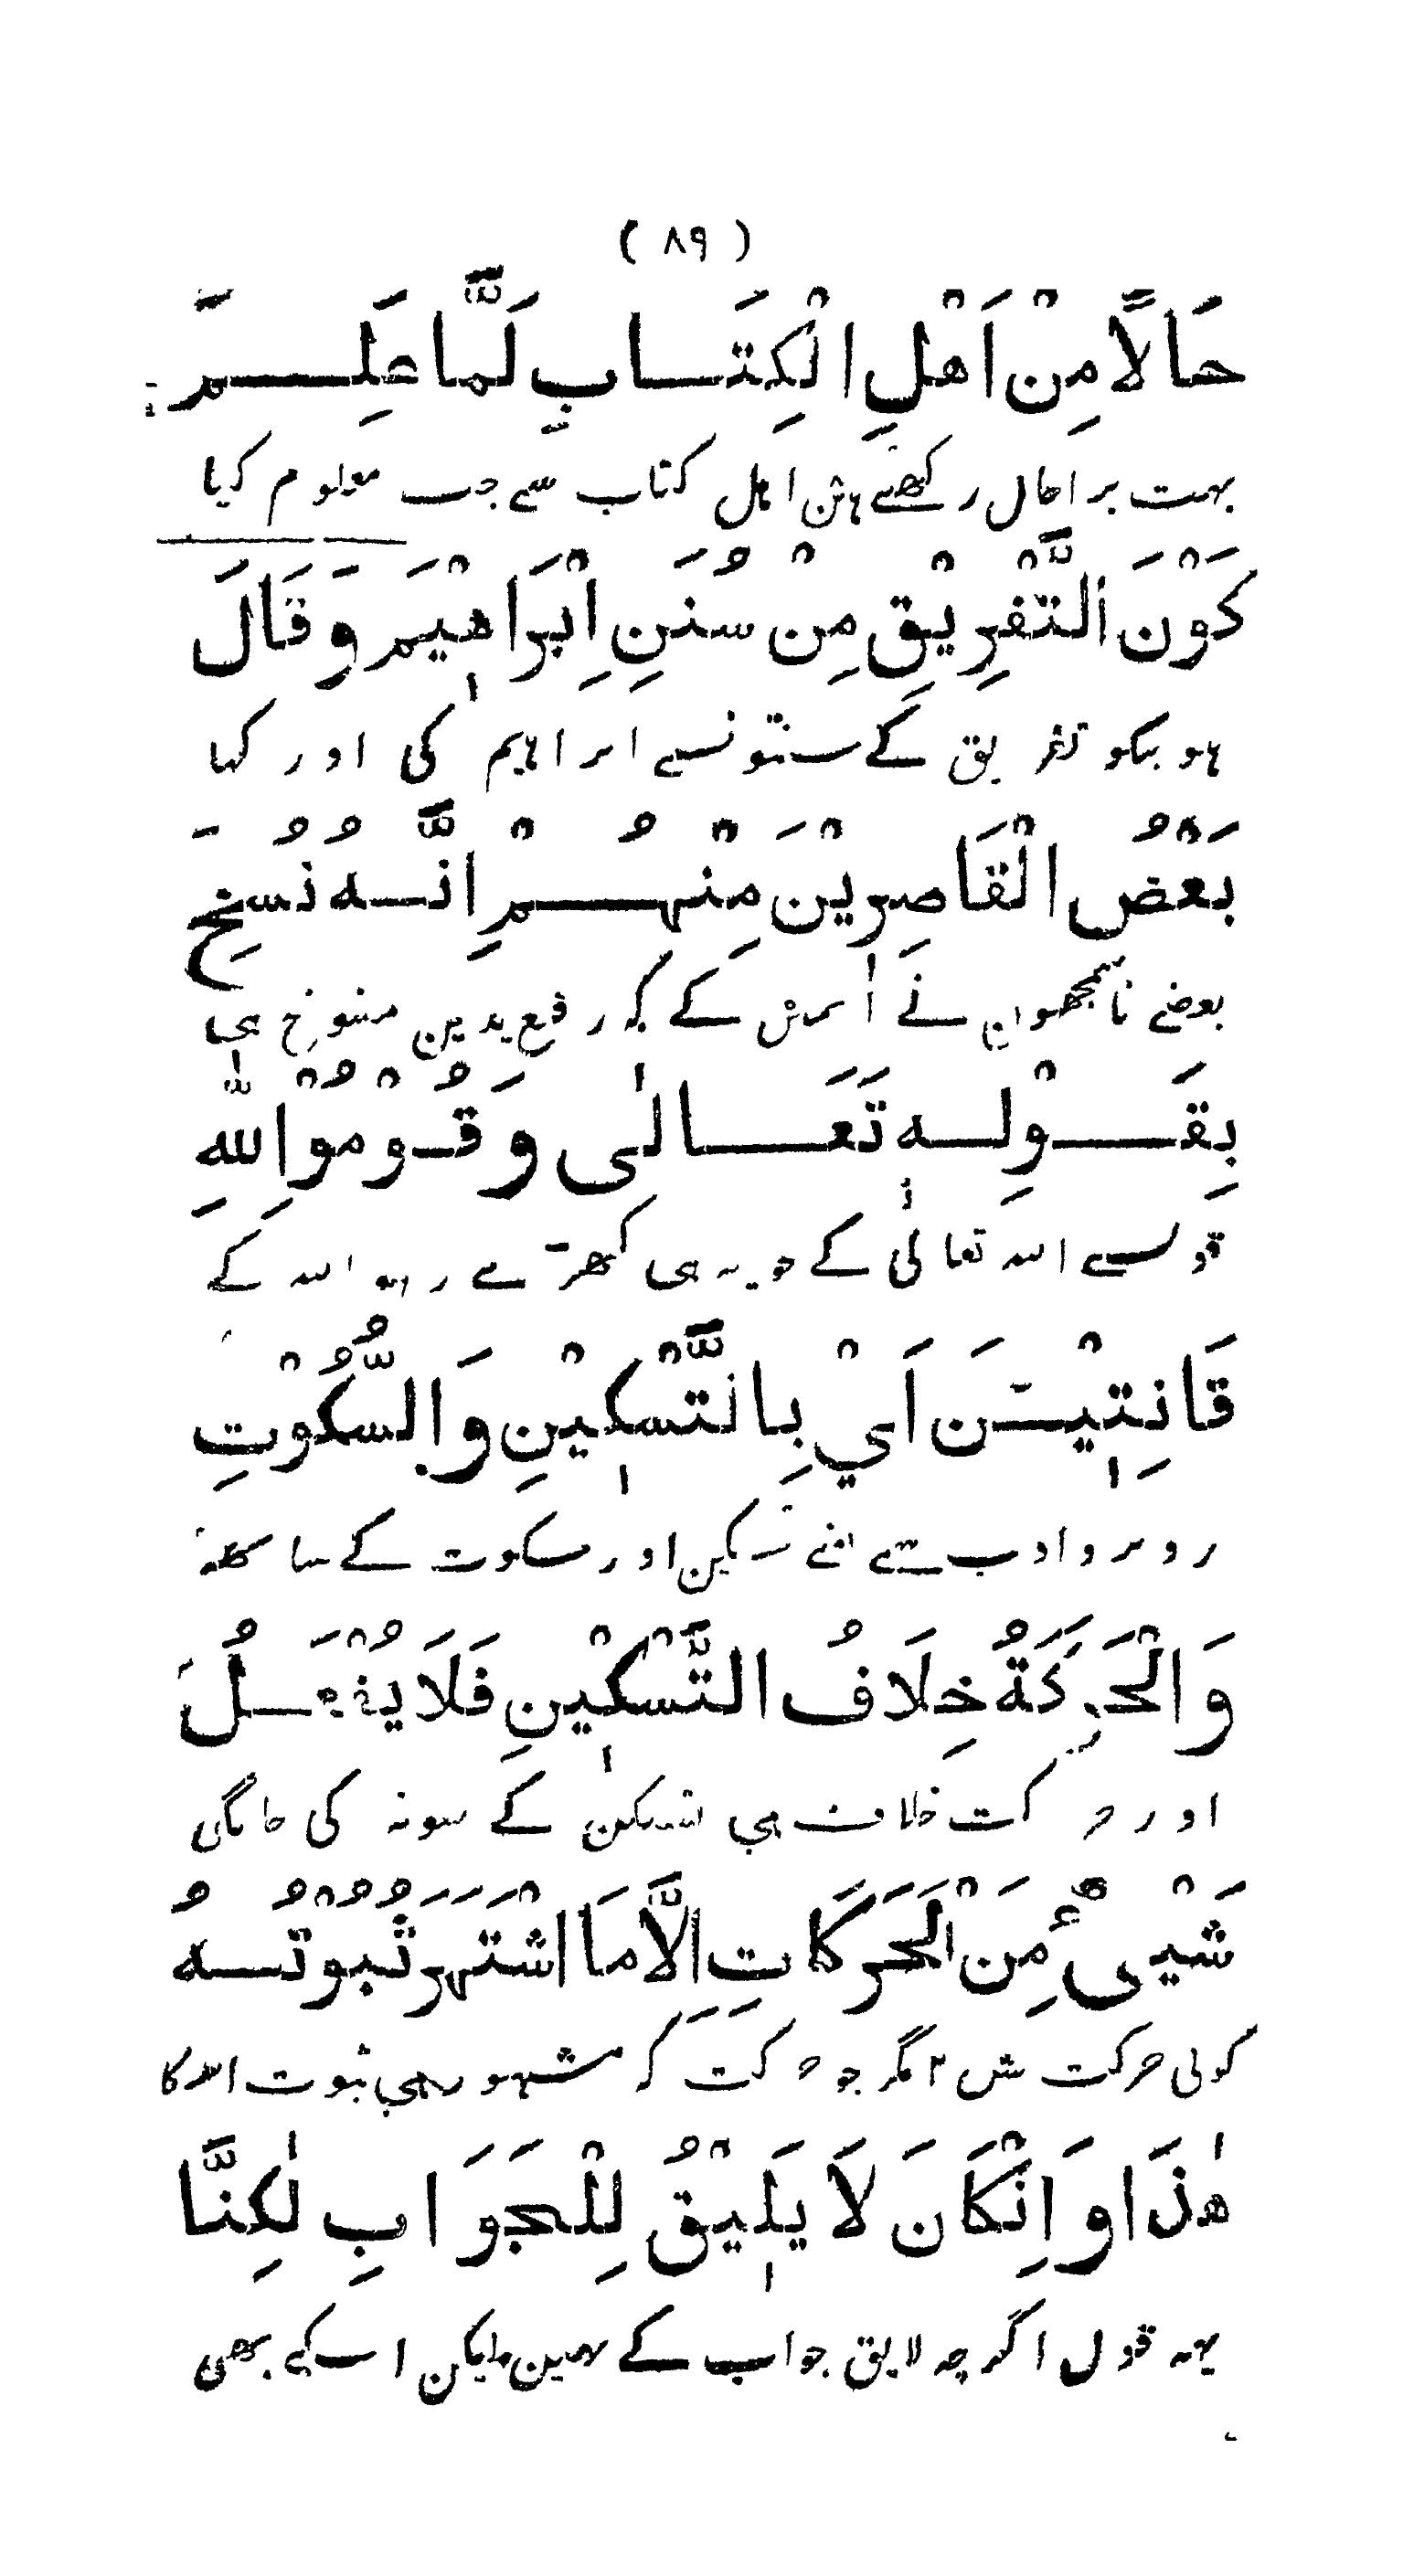 ( ۸۹ )
حَالًا مِنْ اَهْلِ الْكِتَابِ لَمَّا عَلِمَ
بہت برا حال رکھتے ہیں اہل کتاب سے جب معلوم کیا
كَوْنَ التَّفْرِيْقِ مِنْ سُنَنِ اِبْرَاهِيْمَ وَقَالَ
ہونیکو تفریق کے سنتونسے ابراہیم کی اور کہا
بَعْضُ الْقَاصِرِيْنَ مِنْهُمْ اِنَّهُ نُسِخَ
بعضے ناسمجھون نے اسمین کے کہ رفع یدین منسوخ ہی
بِقَوْلِهٖ تَعَالٰى وَقُوْمُوْا لِلّٰهِ
قولسے اللہ تعالیٰ کے جو یہ ہی کھڑے رہو اللہ کے
قَانِتِيْنَ اَيْ بِالتَّسْكِيْنِ وَالسُّكُوْتِ
روبرو ادب سے یعنے تسکین اور سکوت کے ساتھہ
وَالْحَرَكَةُ خِلَافُ التَّسْكِيْنِ فَلَا يُفْعَلُ
اور حرکت خلاف ہی تسکین کے سو نہ کی جائگی
شَيْىءٌ مِنَ الْحَرَكَاتِ اِلَّا مَا اشْتَهَرَ ثُبُوْتُهُ
کوئی حرکت مگر جو حرکت کہ مشہور ہی ثبوت اسکا
هٰذَا وَاِنْكَانَ لَا يَلِيْقُ لِلْجَوَابِ لٰكِنَّا
یہہ قول اگرچہ لایق جواب کے نہین لیکن اسکی بھی